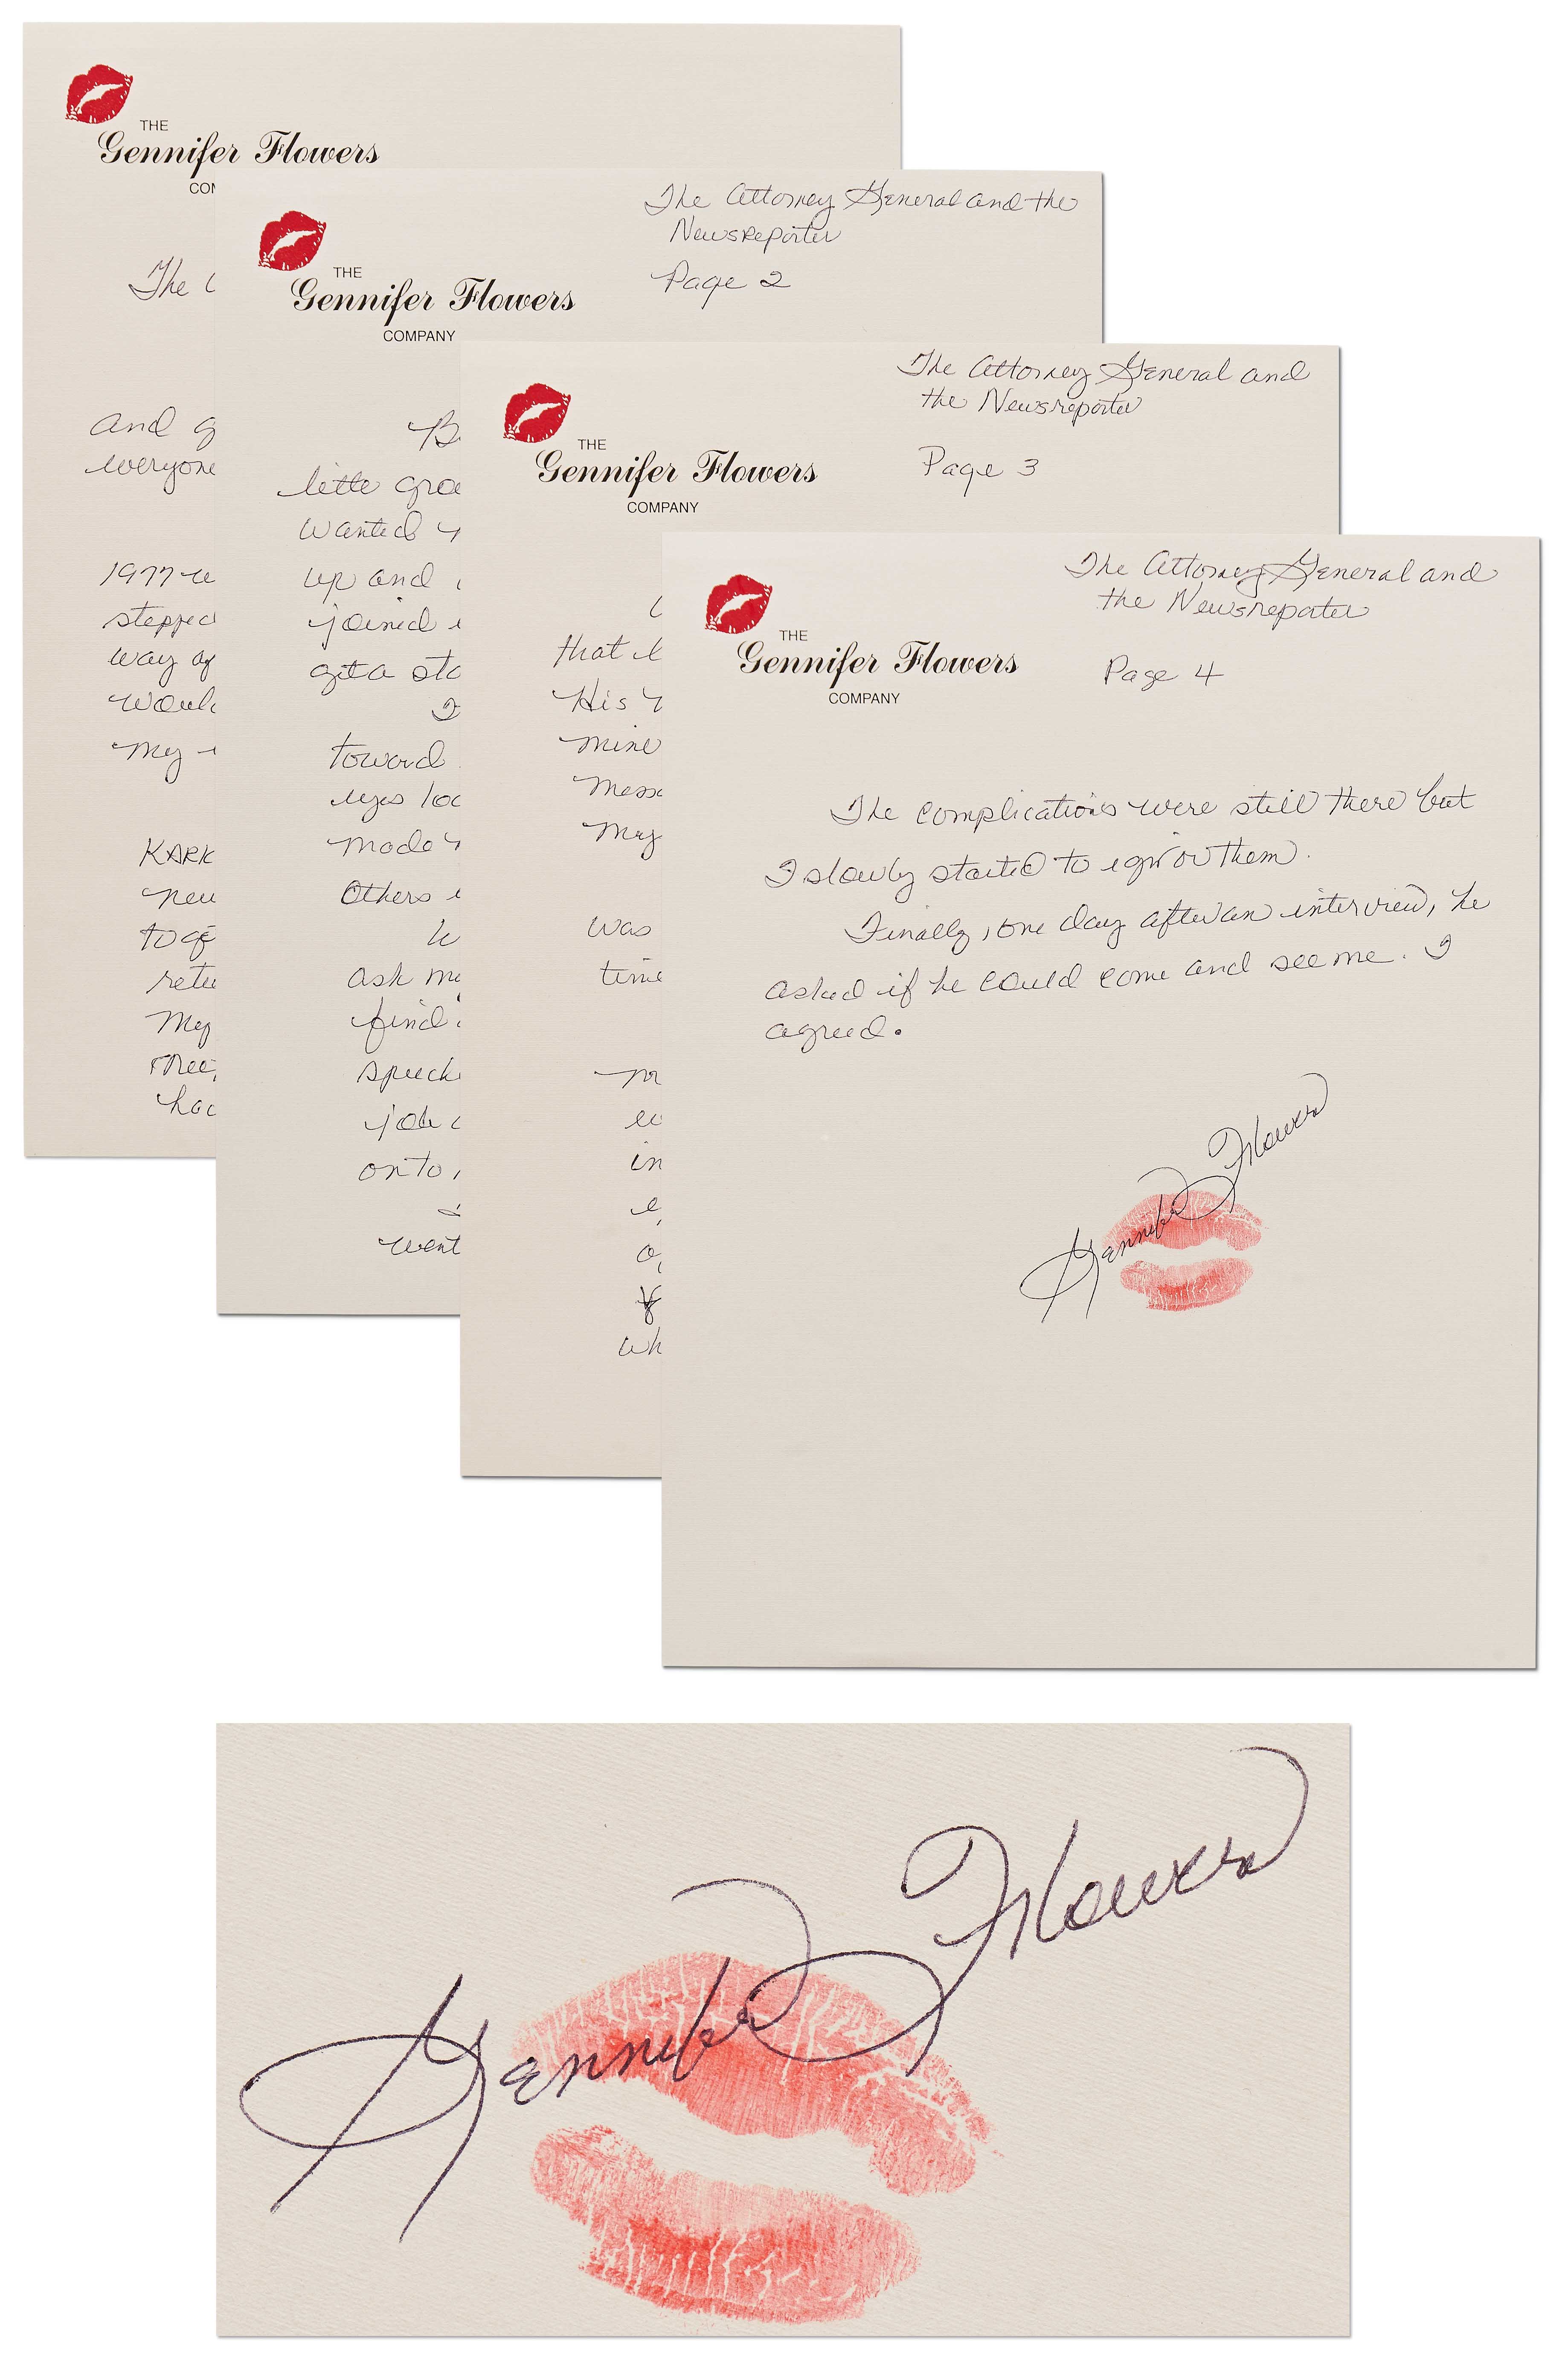 THE
Gennifer Flowers
The
and
everyone
1977
stepped
way of
would
My
KARK
My
THE
Gennifer Flowers
COMPANY
The Attorney General and the
Newsreporter
Page 2
wanted
up and
joined
got a
toward
eyes
made
Others
ask me
find
job
onto
went
THE
Gennifer Flowers
COMPANY
The Attorney General and
the Newsreporter
Page 3
that
His
mine
My
was
time
in
THE
Gennifer Flowers
COMPANY
The Attorney General and
the Newsreporter
Page 4
The complications were still there but
I slowly started to ignore them.
Finally, one day after an interview, he
asked if he could come and see me. I
agreed.
Gennifer Flowers
Gennifer Flowers